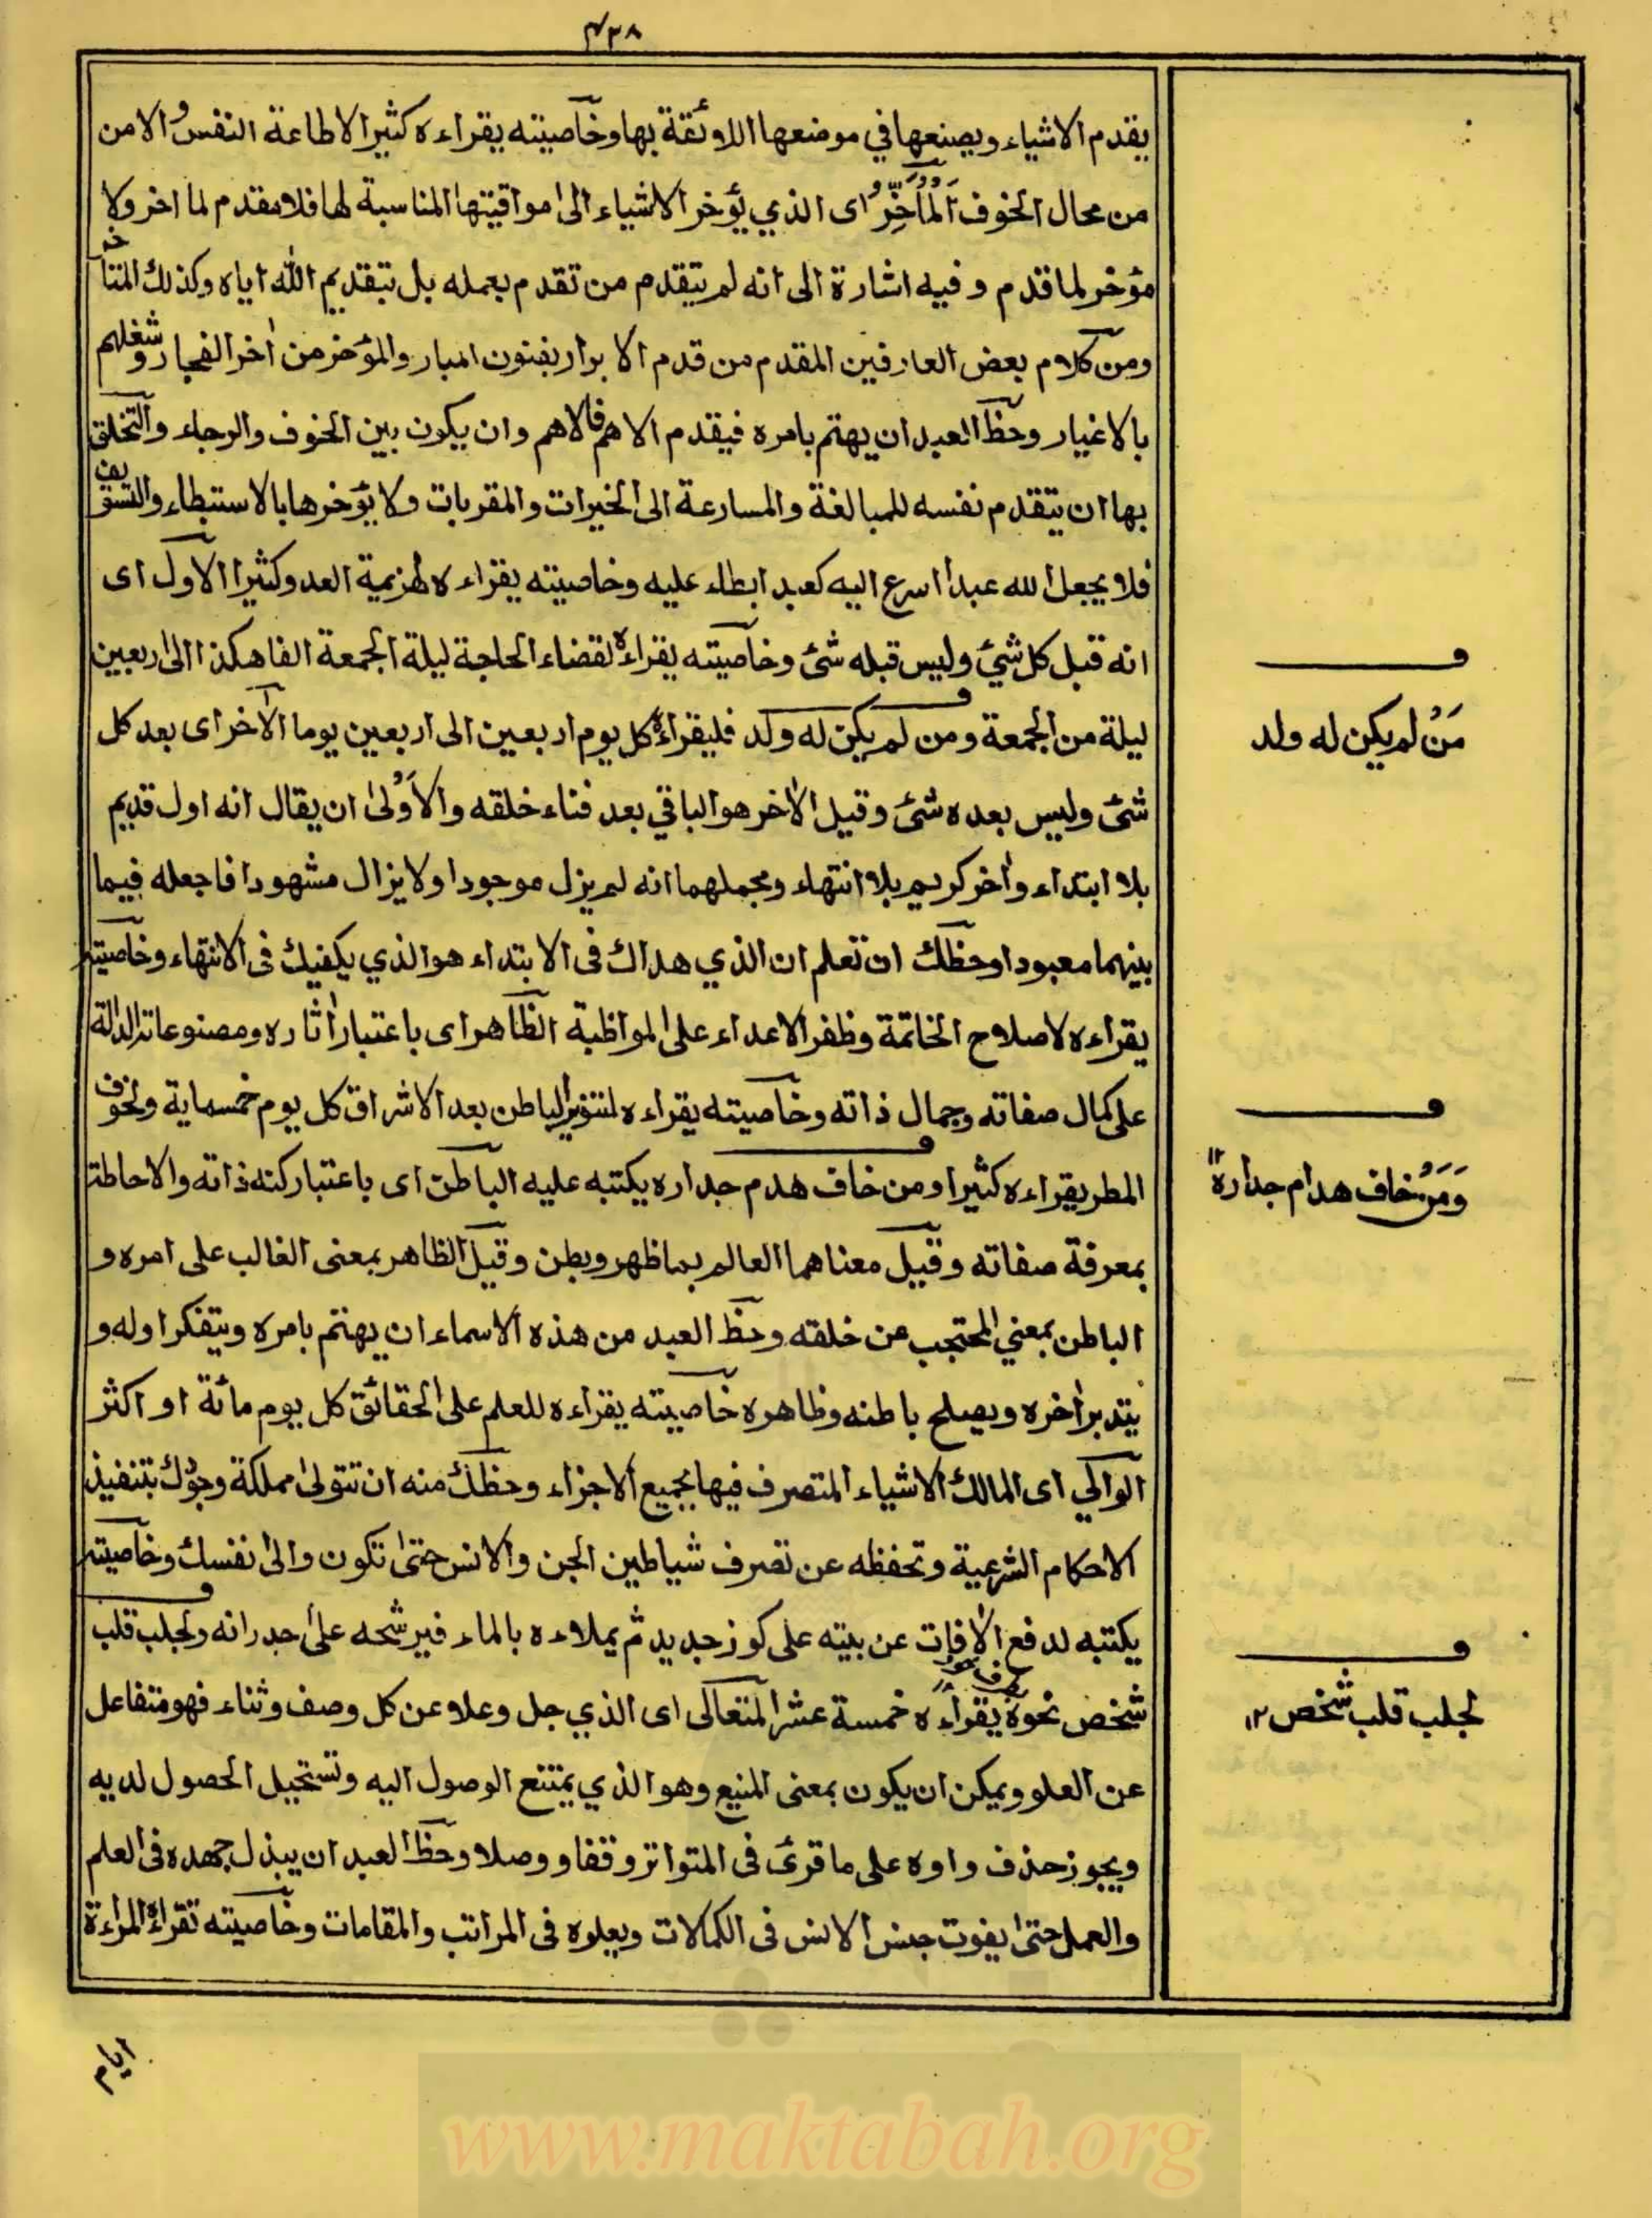 ٤٣٨
يقدم الاشياء ويصنعها في موضعها اللائقة بها وخاصيته يقراءه كثيرا لاطاعة النفس والامن
من محال الخوف اَلْمُأَخِّرُ اى الذي يؤخر الاشياء الى مواقيتها المناسبة لها فلا مقدم لما اخر ولا
مؤخر لما قدم وفيه اشارة الى انه لم يتقدم من تقدم بعمله بل بتقديم الله اياه وكذلك المتأخر
ومن كلام بعض العارفين المقدم من قدم الابرار بفنون المبار والمؤخر من اخر الفجار وشغلهم
بالاغيار وحظ العبد ان يهتم بامره فيقدم الاهم فالاهم وان يكون بين الخوف والرجاء والتخلق
بها ان يتقدم نفسه للمبالغة والمسارعة الى الخيرات والمقربات ولا يؤخرها بالاستبطاء والتسويف
فلا يجعل الله عبدا اسرع اليه كعبد ابطاء عليه وخاصيته يقراءه لهزيمة العدو كثيرا الاول اى
انه قبل كل شيئ وليس قبله شئ وخاصيته يقراءه لقضاء الحاجة ليلة الجمعة الفا هكذا الى اربعين
ليلة من الجمعة ومن لم يكن له ولد فليقراءه كل يوم اربعين الى اربعين يوما الآخر اى بعد كل
شئ وليس بعده شئ وقيل الآخر هو الباقي بعد فناء خلقه والأَوْلى ان يقال انه اول قديم
بلا ابتداء واخر كريم بلا انتهاء ومجملهما انه لم يزل موجودا ولا يزال مشهودا فاجعله فيما
بينهما معبودا وحظك ان تعلم ان الذي هداك فى الابتداء هو الذي يكفيك فى الانتهاء وخاصيته
يقراءه لاصلاح الخاتمة وظفر الاعداء على المواظبة الظاهر اى باعتبار اثاره ومصنوعاته الدالة
على كمال صفاته وجمال ذاته وخاصيته يقراءه لتنوير الباطن بعد الاشراق كل يوم خمسماية ولخوف
المطر يقراءه كثيرا ومن خاف هدم جداره يكتبه عليه الباطن اى باعتبار كنه ذاته والاحاطة
بمعرفة صفاته وقيل معناهما العالم بما ظهر وبطن وقيل الظاهر بمعنى الغالب على امره و
الباطن بمعني المحتجب عن خلقه وحظ العبد من هذه الاسماء ان يهتم بامره ويتفكر اوله و
يتدبر اخره ويصلح باطنه وظاهره خاصيته يقراءه للعلم على الحقائق كل يوم مائة او اكثر
الوالي اى المالك الاشياء المتصرف فيها بجميع الاجزاء وحظك منه ان تتولى مملكة وجودك بتنفيذ
الاحكام الشرعية وتحفظه عن تصرف شياطين الجن والانس حتى تكون والى نفسك وخاصيته
يكتبه لدفع الافات عن بيته على كوز جديد ثم يملاءه بالماء فيرشحه على جدرانه ولجلب قلب
شخص نحوه يقراءه خمسة عشر المتعالى اى الذي جل وعلا عن كل وصف وثناء فهو متفاعل
عن العلو ويمكن ان يكون بمعنى المنيع وهو الذي يمتنع الوصول اليه وتستحيل الحصول لديه
ويجوز حذف واوه على ما قرئ فى المتواتر وقفا ووصلا وحظ العبد ان يبذل جهده فى العلم
والعمل حتى يفوت جنس الانس فى الكمالات ويعلوه فى المراتب والمقامات وخاصيته تقراءه المراءة
ايام
مَنْ لم يكن له ولد
وَمَنْ خاف هدام جداره ١٢
لجلب قلب شخص ١٢
www.maktabah.org